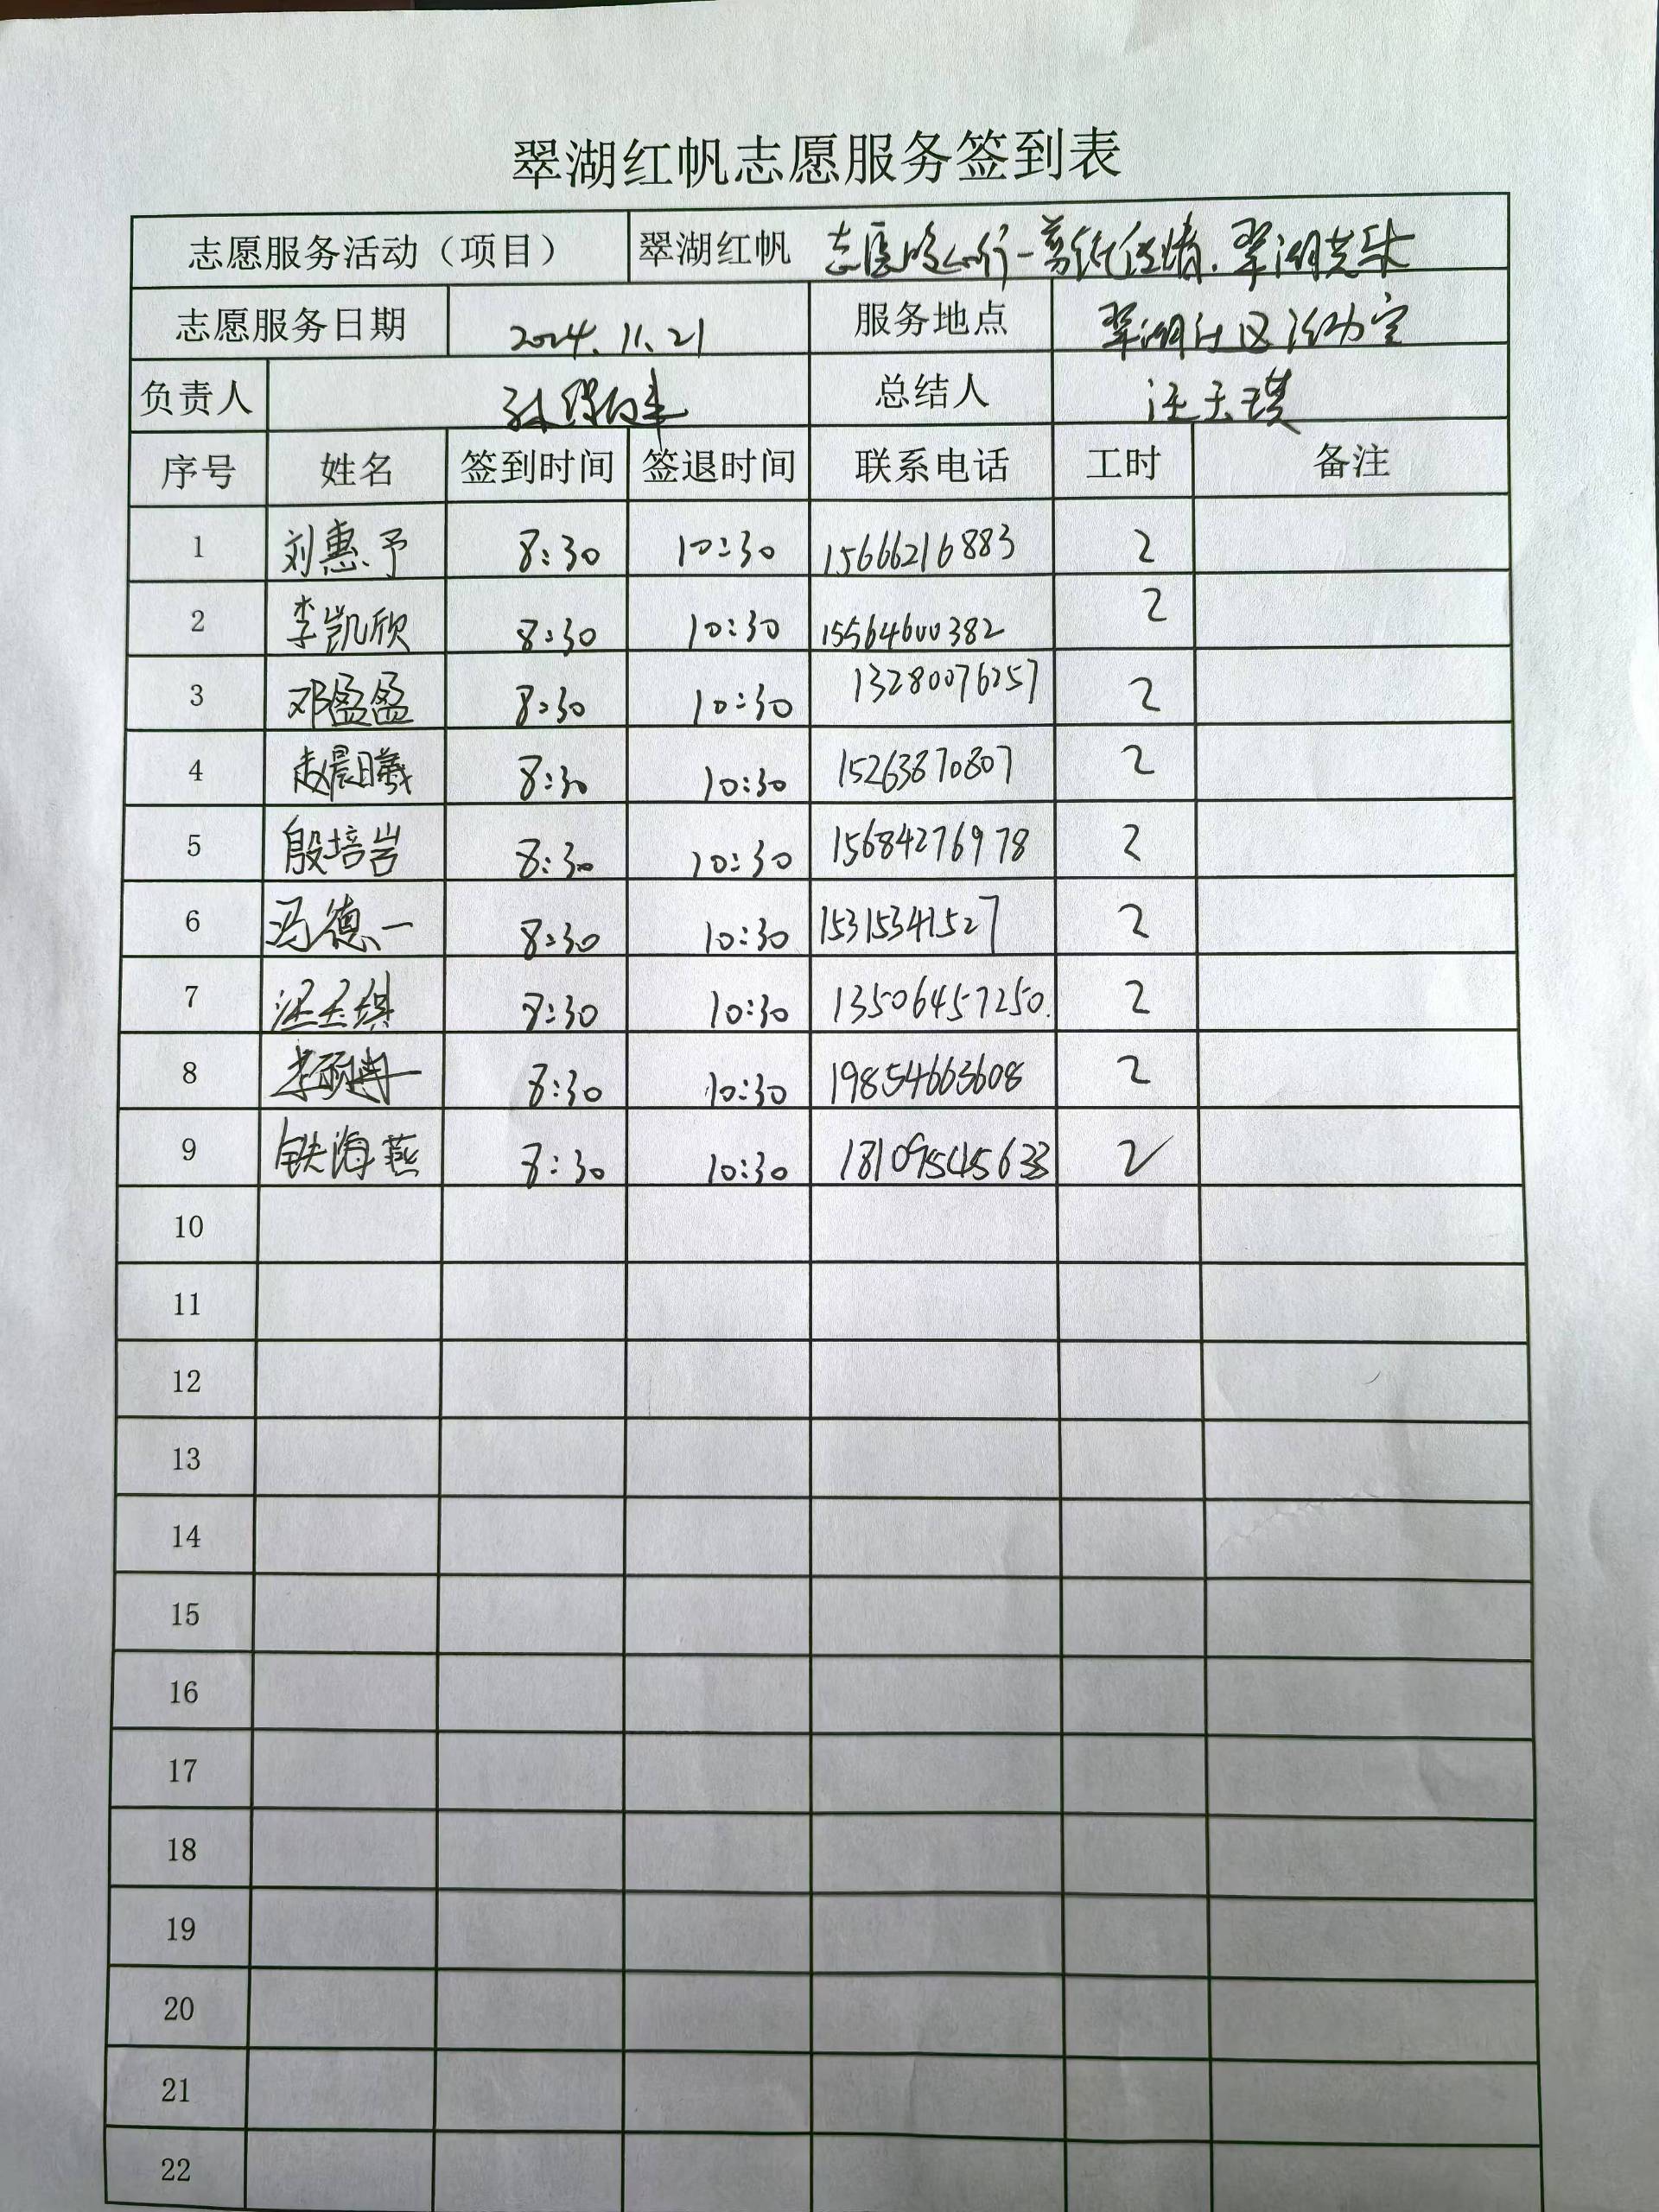 翠湖红帆志愿服务签到表
志愿服务活动（项目） 翠湖红帆 志愿 剪纸传情.翠湖共乐
志愿服务日期 2024.11.21 服务地点 翠湖社区活动室
负责人 总结人 汪玉琪
序号 姓名 签到时间 签退时间 联系电话 工时 备注
1 刘惠予 8:30 10:30 15666216883 2
2 李凯欣 8:30 10:30 15564600382 2
3 邓盈盈 8:30 10:30 13280076257 2
4 赵晨曦 8:30 10:30 15263870807 2
5 殷培岩 8:30 10:30 15684276978 2
6 冯德一 8:30 10:30 15315341527 2
7 汪玉琪 8:30 10:30 13506457250 2
8 8:30 10:30 19854663608 2
9 铁海燕 8:30 10:30 18109545633 2
10
11
12
13
14
15
16
17
18
19
20
21
22